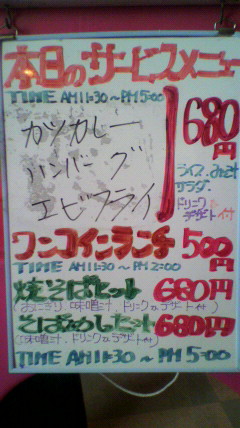 本日のサービスメニュー
TIME AM11:30～PM5:00
カツカレー
ハンバーグ
エビフライ
680円
ライス.みそ汁
サラダ.
ドリンク
デザート付
ワンコインランチ 500円
TIME AM11:30～PM2:00
焼そばセット 680円
(おにぎり.味噌汁.ドリンク.デザート付)
そばめしセット 680円
(味噌汁.ドリンク.デザート付)
TIME AM11:30～PM5:00